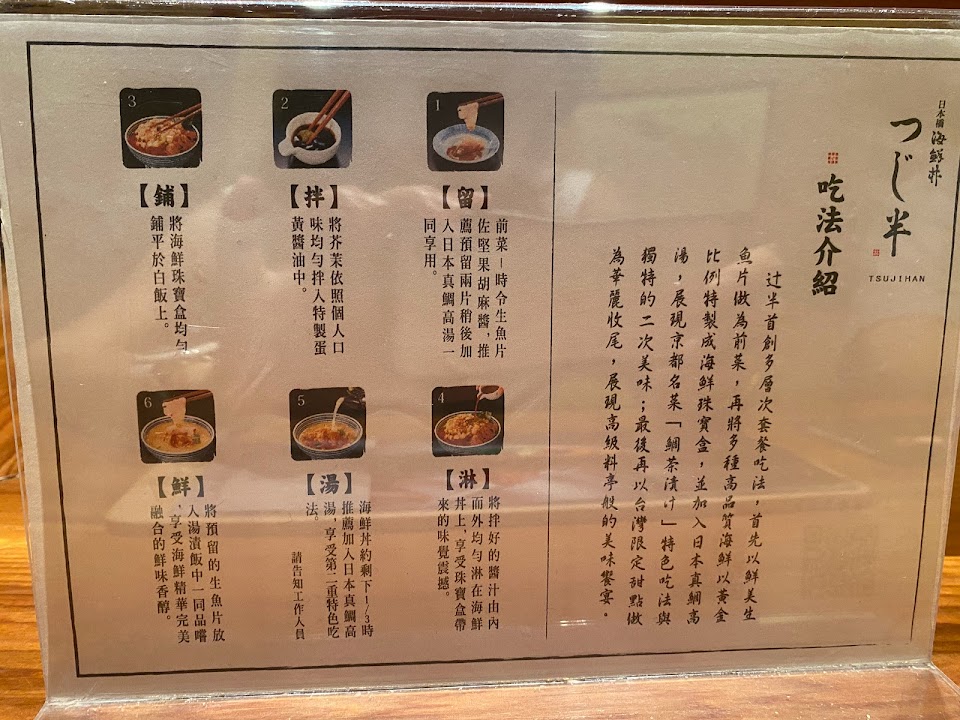 日本橋
海鮮丼
つじ半
TSUJIHAN
吃法介紹
辻半首創多層次套餐吃法，首先以鮮美生
魚片做為前菜，再將多種高品質海鮮以黃金
比例特製成海鮮珠寶盒，並加入日本真鯛高
湯，展現京都名菜「鯛茶漬け」特色吃法與
獨特的二次美味；最後再以台灣限定甜點做
為華麗收尾，展現高級料亭般的美味饗宴。
1
【留】
前菜－時令生魚片
佐堅果胡麻醬，推
薦預留兩片稍後加
入日本真鯛高湯一
同享用。
2
【拌】
將芥茉依照個人口
味均勻拌入特製蛋
黃醬油中。
3
【鋪】
將海鮮珠寶盒均勻
鋪平於白飯上。
4
【淋】
將拌好的醬汁由內
而外均勻淋在海鮮
丼上，享受珠寶盒帶
來的味覺震撼。
5
【湯】
海鮮丼約剩下1/3時
推薦加入日本真鯛高
湯，享受第二重特色吃
法。
請告知工作人員
6
【鮮】
將預留的生魚片放
入湯漬飯中一同品嚐
，享受海鮮精華完美
融合的鮮味香醇。